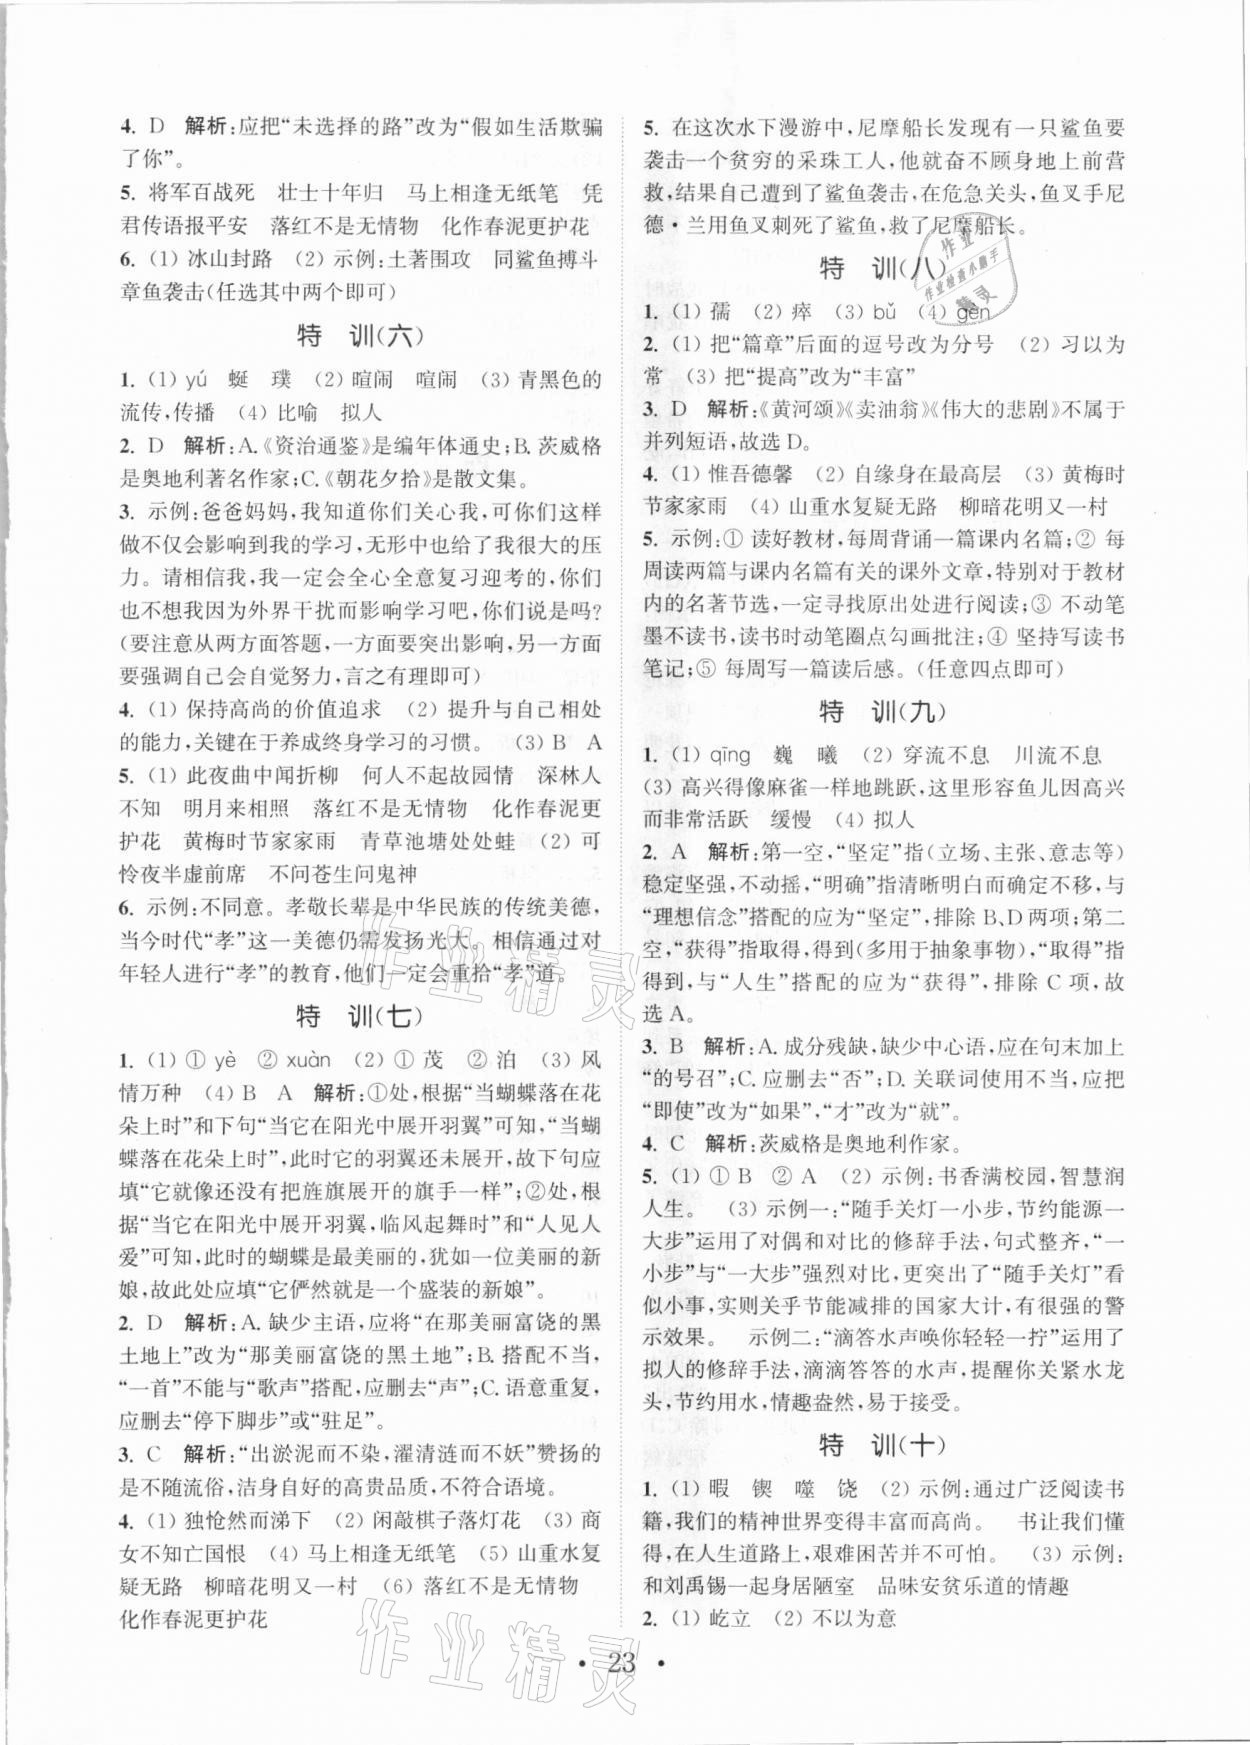 4. D 解析:应把“未选择的路”改为“假如生活欺骗
了你”。
5. 将军百战死 壮士十年归 马上相逢无纸笔 凭
君传语报平安 落红不是无情物 化作春泥更护花
6. (1) 冰山封路 (2) 示例:土著围攻 同鲨鱼搏斗
章鱼袭击(任选其中两个即可)
特 训(六)
1. (1) yú 蜒 璞 (2) 暄闹 喧闹 (3) 青黑色的
流传,传播 (4) 比喻 拟人
2. D 解析:A.《资治通鉴》是编年体通史;B. 茨威格
是奥地利著名作家;C.《朝花夕拾》是散文集。
3. 示例:爸爸妈妈,我知道你们关心我,可你们这样
做不仅会影响到我的学习,无形中也给了我很大的压
力。请相信我,我一定会全心全意复习迎考的,你们
也不想我因为外界干扰而影响学习吧,你们说是吗?
(要注意从两方面答题,一方面要突出影响,另一方面
要强调自己会自觉努力,言之有理即可)
4. (1) 保持高尚的价值追求 (2) 提升与自己相处
的能力,关键在于养成终身学习的习惯。 (3) B A
5. (1) 此夜曲中闻折柳 何人不起故园情 深林人
不知 明月来相照 落红不是无情物 化作春泥更
护花 黄梅时节家家雨 青草池塘处处蛙 (2) 可
怜夜半虚前席 不问苍生问鬼神
6. 示例:不同意。孝敬长辈是中华民族的传统美德,
当今时代“孝”这一美德仍需发扬光大。相信通过对
年轻人进行“孝”的教育,他们一定会重拾“孝”道。
特 训(七)
1. (1) ① yè ② xuàn (2) ① 茂 ② 泊 (3) 风
情万种 (4) B A 解析:①处,根据“当蝴蝶落在花
朵上时”和下句“当它在阳光中展开羽翼”可知,“当蝴
蝶落在花朵上时”,此时它的羽翼还未展开,故下句应
填“它就像还没有把旌旗展开的旗手一样”;②处,根
据“当它在阳光中展开羽翼,临风起舞时”和“人见人
爱”可知,此时的蝴蝶是最美丽的,如一位美丽的新
娘,故此处应填“它俨然就是一个盛装的新娘”。
2. D 解析:A. 缺少主语,应将“在那美丽富饶的黑
土地上”改为“那美丽富饶的黑土地”;B. 搭配不当,
“一首”不能与“歌声”搭配,应删去“声”;C. 语意重复,
应删去“停下脚步”或“驻足”。
3. C 解析:“出淤泥而不染,濯清涟而不妖”赞扬的
是不随流俗,洁身自好的高贵品质,不符合语境。
4. (1) 独怆然而涕下 (2) 闲敲棋子落灯花 (3) 商
女不知亡国恨 (4) 马上相逢无纸笔 (5) 山重水复
疑无路 柳暗花明又一村 (6) 落红不是无情物
化作春泥更护花
5. 在这次水下漫游中,尼摩船长发现有一只鲨鱼要
袭击一个贫穷的采珠工人,他就奋不顾身地上前营
救,结果自己遭到了鲨鱼袭击,在危急关头,鱼叉手尼
德·兰用鱼叉刺死了鲨鱼,救了尼摩船长。
特 训(八)
1. (1) 孺 (2) 瘁 (3) bǔ (4) gèn
2. (1) 把“篇章”后面的逗号改为分号 (2) 习以为
常 (3) 把“提高”改为“丰富”
3. D 解析:《黄河颂》《卖油翁》《伟大的悲剧》不属于
并列短语,故选 D。
4. (1) 惟吾德馨 (2) 自缘身在最高层 (3) 黄梅时
节家家雨 (4) 山重水复疑无路 柳暗花明又一村
5. 示例:① 读好教材,每周背诵一篇课内名篇;② 每
周读两篇与课内名篇有关的课外文章,特别对于教材
内的名著节选,一定寻找原出处进行阅读;③ 不动笔
墨不读书,读书时动笔圈点勾画批注;④ 坚持写读书
笔记;⑤ 每周写一篇读后感。(任意四点即可)
特 训(九)
1. (1) qīng 巍 曦 (2) 穿流不息 川流不息
(3) 高兴得像麻雀一样地跳跃,这里形容鱼儿因高兴
而非常活跃 缓慢 (4) 拟人
2. A 解析:第一空,“坚定”指(立场、主张、意志等)
稳定坚强,不动摇,“明确”指清晰明白而确定不移,与
“理想信念”搭配的应为“坚定”,排除 B、D 两项;第二
空,“获得”指取得,得到(多用于抽象事物),“取得”指
得到,与“人生”搭配的应为“获得”,排除 C 项,故
选 A。
3. B 解析:A. 成分残缺,缺少中心语,应在句末加上
“的号召”;C. 应删去“否”;D. 关联词使用不当,应把
“即使”改为“如果”,“才”改为“就”。
4. C 解析:茨威格是奥地利作家。
5. (1) ① B ② A (2) 示例:书香满校园,智慧润
人生。 (3) 示例一:“随手关灯一小步,节约能源一
大步”运用了对偶和对比的修辞手法,句式整齐,“一
小步”与“一大步”强烈对比,更突出了“随手关灯”看
似小事,实则关乎节能减排的国家大计,有很强的警
示效果。 示例二:“滴答水声唤你轻轻一拧”运用了
拟人的修辞手法,滴滴答答的水声,提醒你关紧水龙
头,节约用水,情趣盎然,易于接受。
特 训(十)
1. (1) 暇 锲 噬 饶 (2) 示例:通过广泛阅读书
籍,我们的精神世界变得丰富而高尚。 书让我们懂
得,在人生道路上,艰难困苦并不可怕。 (3) 示例:
和刘禹锡一起身居陋室 品味安贫乐道的情趣
2. (1) 屹立 (2) 不以为意
· 23 ·
作业精灵
作业精灵
作业
作业检查小助手
精灵